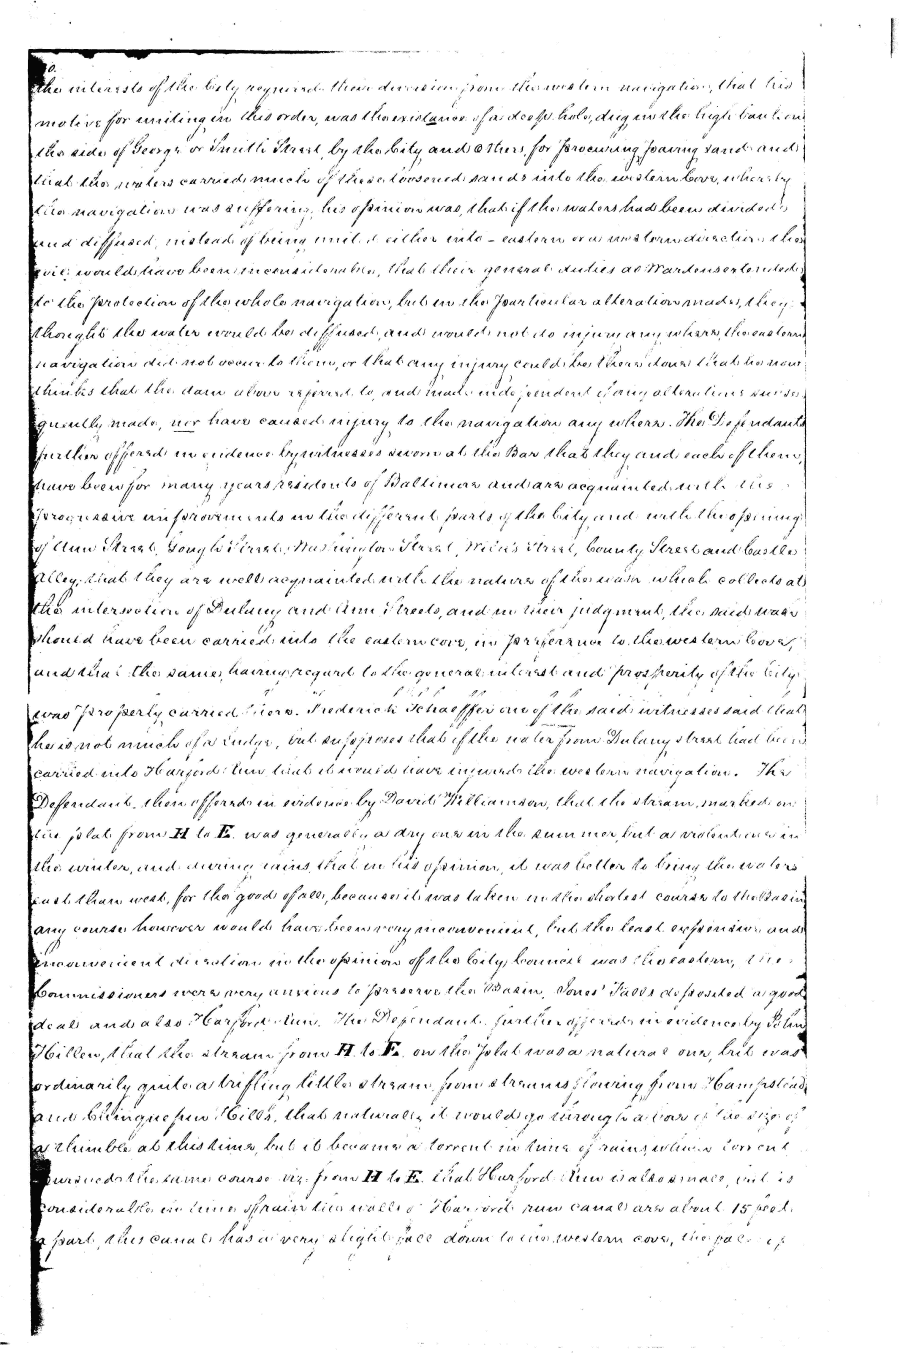 the interests of the City required their diversion from the western navigation, that his
motive for uniting in this order, was the existance of a deep hole, dug in the high bank on
the side of George or Smith Street, by the City and others, for procuring paving sand and
that the waters carried much of these loosened sands into the western cove, whereby
the navigation was suffering, his opinion was, that if the waters had been divided
and diffused, instead of being united either into eastern or a western direction the
evil would have been inconsiderable, that their general duties as Wardens extended
to the protection of the whole navigation, but in the particular alteration made, they
thought the water would be diffused, and would not do injury any where, the eastern
navigation did not occur to them, or that any injury could be there done that he now
thinks that the dam above referred to, and made independent of any alterations subse
quently made, nor have caused injury to the navigation any where. The Defendants
further offered in evidence by witnesses sworn at the Bar that they and each of them,
have been for many years residents of Baltimore and are acquainted with the
progressive improvements in the different parts of the City, and with the opening
of Ann Street, Gough Street, Washington Street, Wilks Street, County Street and Castle
Alley, that they are well acquainted with the nature of the wash which collects at
the intersection of Dulany and Ann Streets, and in their judgment, the said wash
should have been carried into the eastern cove, in preference to the western Cove,
and that the same, having regard to the general interest and prosperity of the City
was properly carried there. Frederick Schaeffer one of the said witnesses said that
he is not much of a Judge, but supposes that if the water from Dulany street had been
carried into Harford Run that it would have injured the western navigation. The
Defendant then offered in evidence by David Williamson, that the stream, marked on
the plat from H to E was generally a dry one in the summer, but a violent one in
the winter, and during rains, that in his opinion, it was better to bring the waters
east than west, for the good of all, because it was taken in the shortest course to the Basin
any course however would have been very inconvenient, but the least expensive and
inconvenient direction in the opinion of the City Council was the eastern, the
Commissioners were very anxious to preserve the Basin. Jones' Falls deposited a good
deal and also Harford Run. The Defendant further offered in evidence by John
Hillen, that the stream from H to E on the plat was a natural one, but was
ordinarily quite a trifling little stream, from streams flowing from Hampstead
and Chinquepin Hills, that naturally it would go through a bar of the size of
a thimble at this time, but it became a torrent in time of rains which torrent
pursued the same course viz: from H to E. that Harford Run is also small, but is
considerable in time of rain the walls of Harford run canal are about 15 feet
a part, this canal has a very slight fall down to the western cove, the fall of